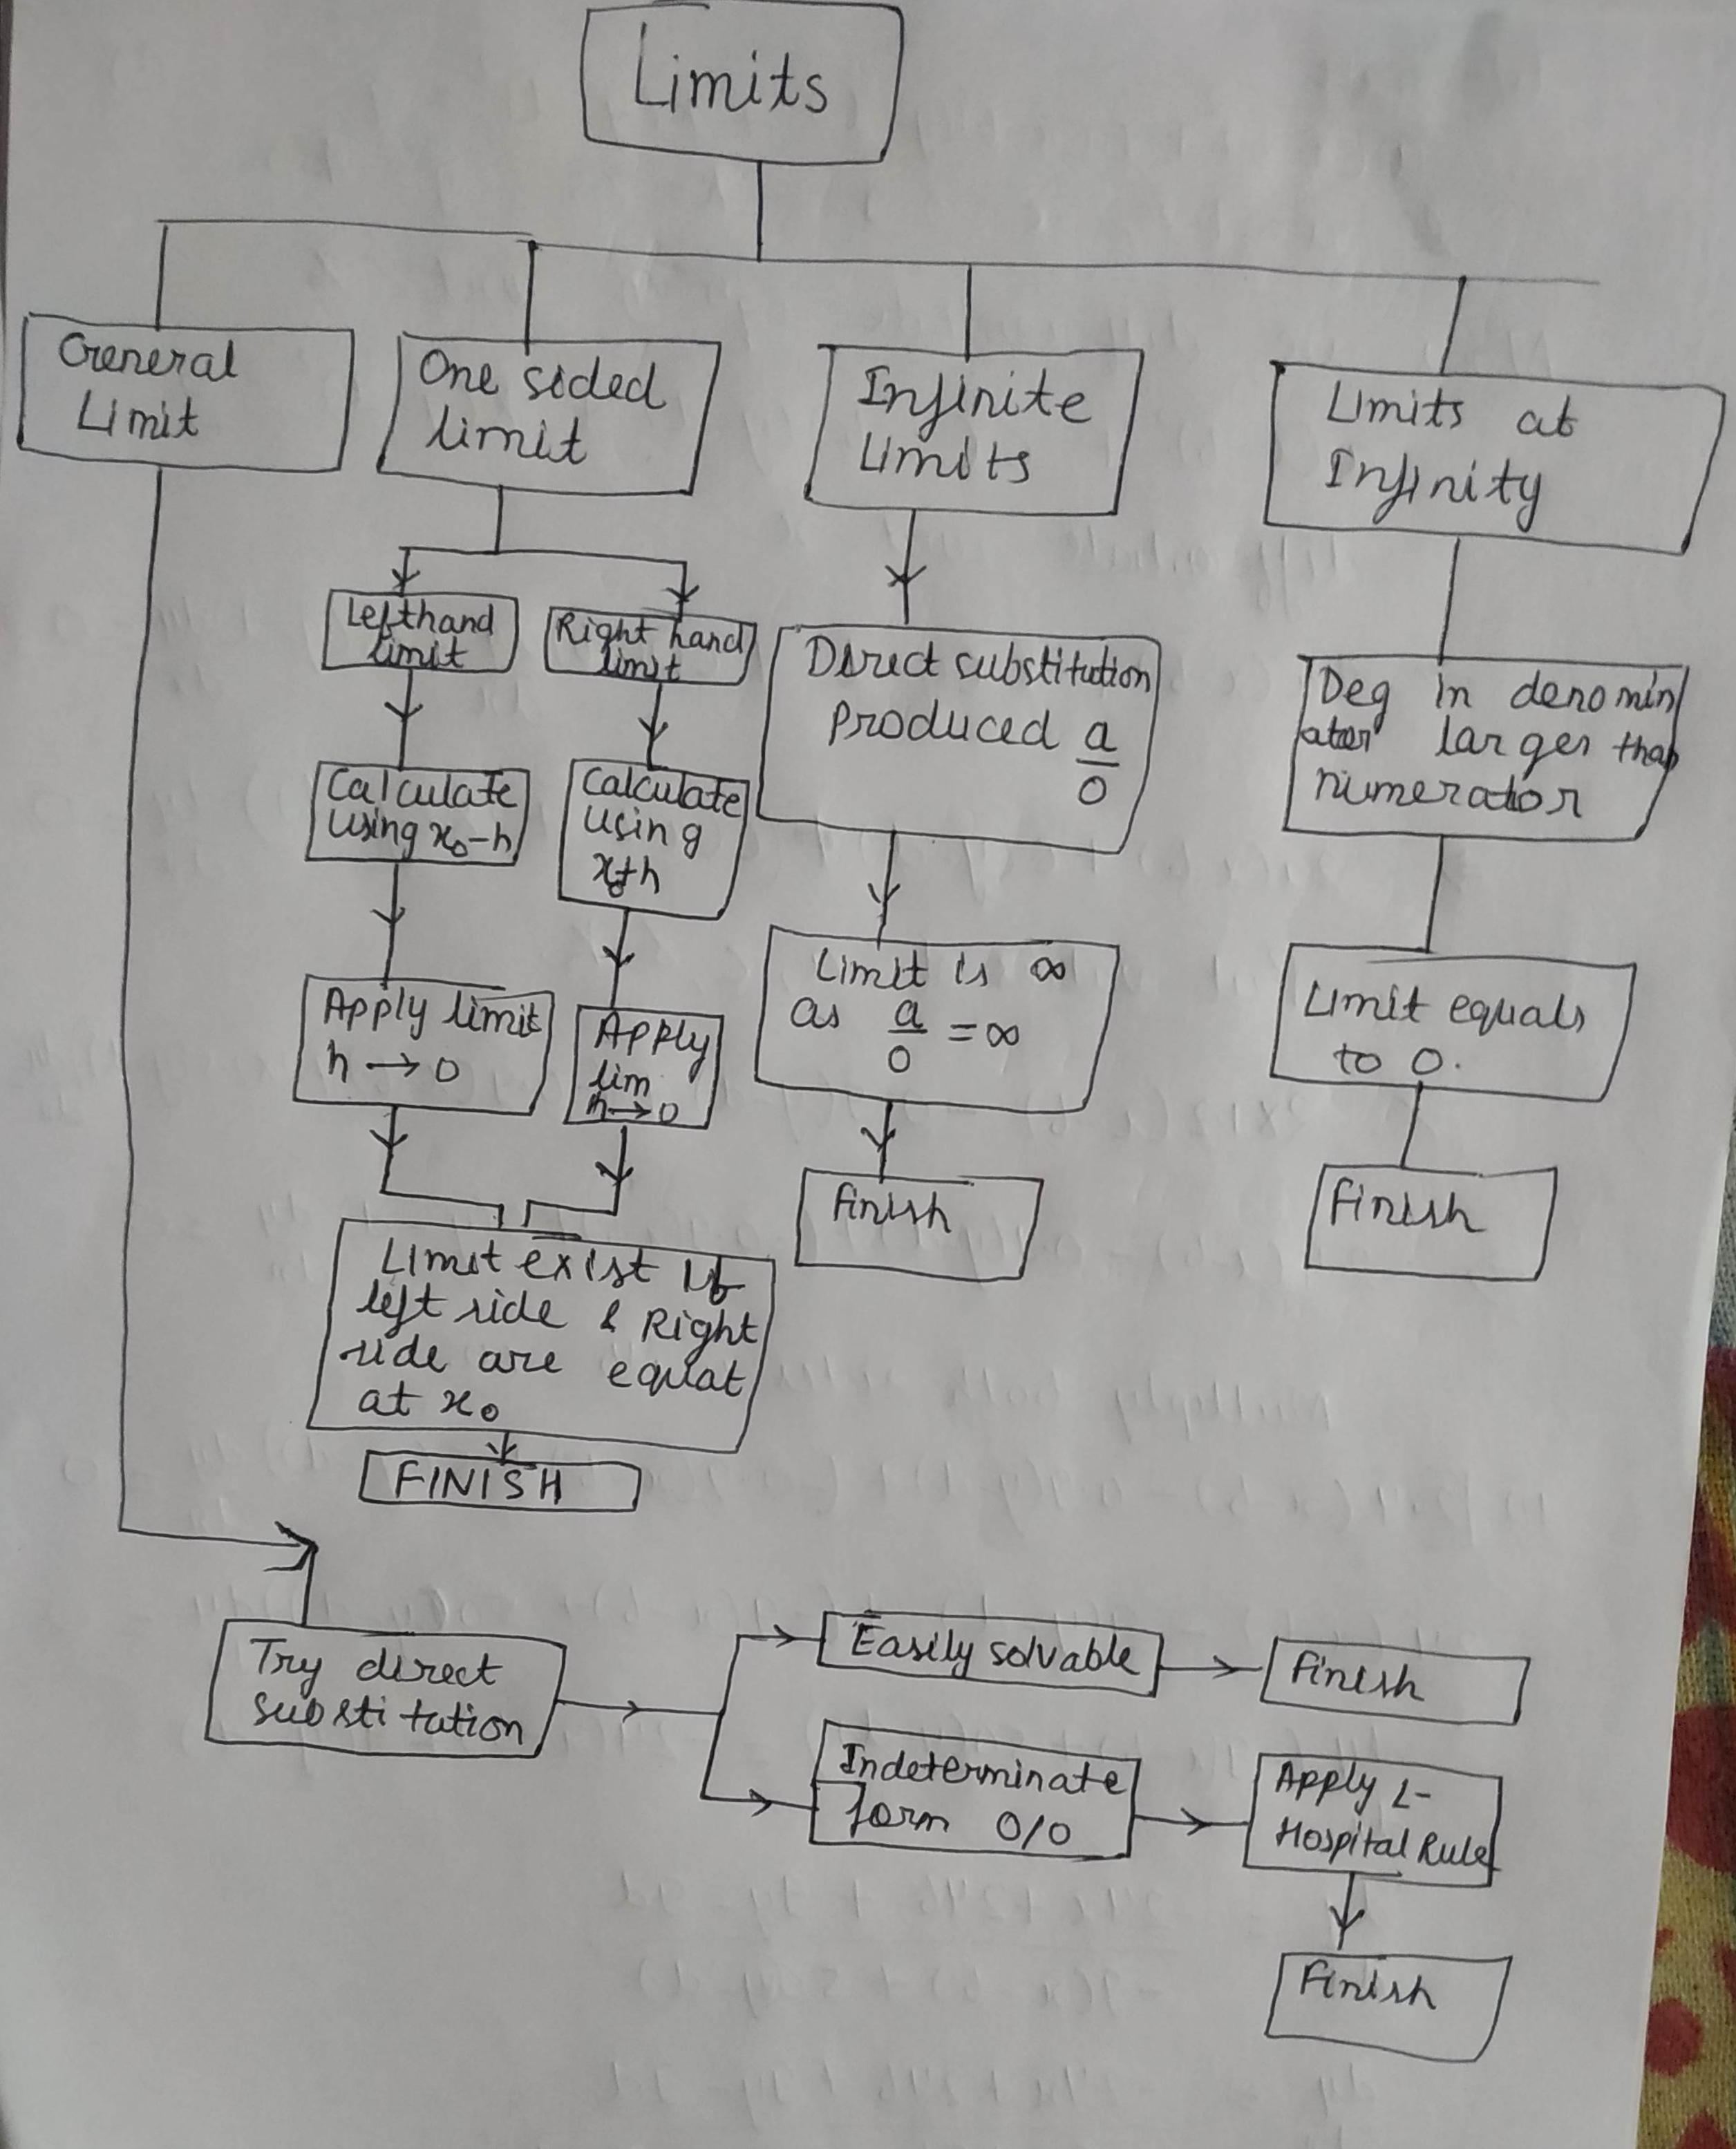 Limits
General
Limit
One sided
limit
Infinite
Limits
Limits at
Infinity
Lefthand
limit
Right hand
limit
Direct substitution
produced a
0
Deg in denomin
ator larger than
numerator
Calculate
using x₀-h
Calculate
using
x₀+h
Limit is ∞
as a/0 = ∞
Limit equals
to 0.
Apply limit
h → 0
Apply
lim
h→0
Finish
Finish
Limit exist if
left side & Right
side are equal
at x₀
FINISH
Try direct
substitution
Easily solvable
Finish
Indeterminate
form 0/0
Apply L-
Hospital Rule
Finish